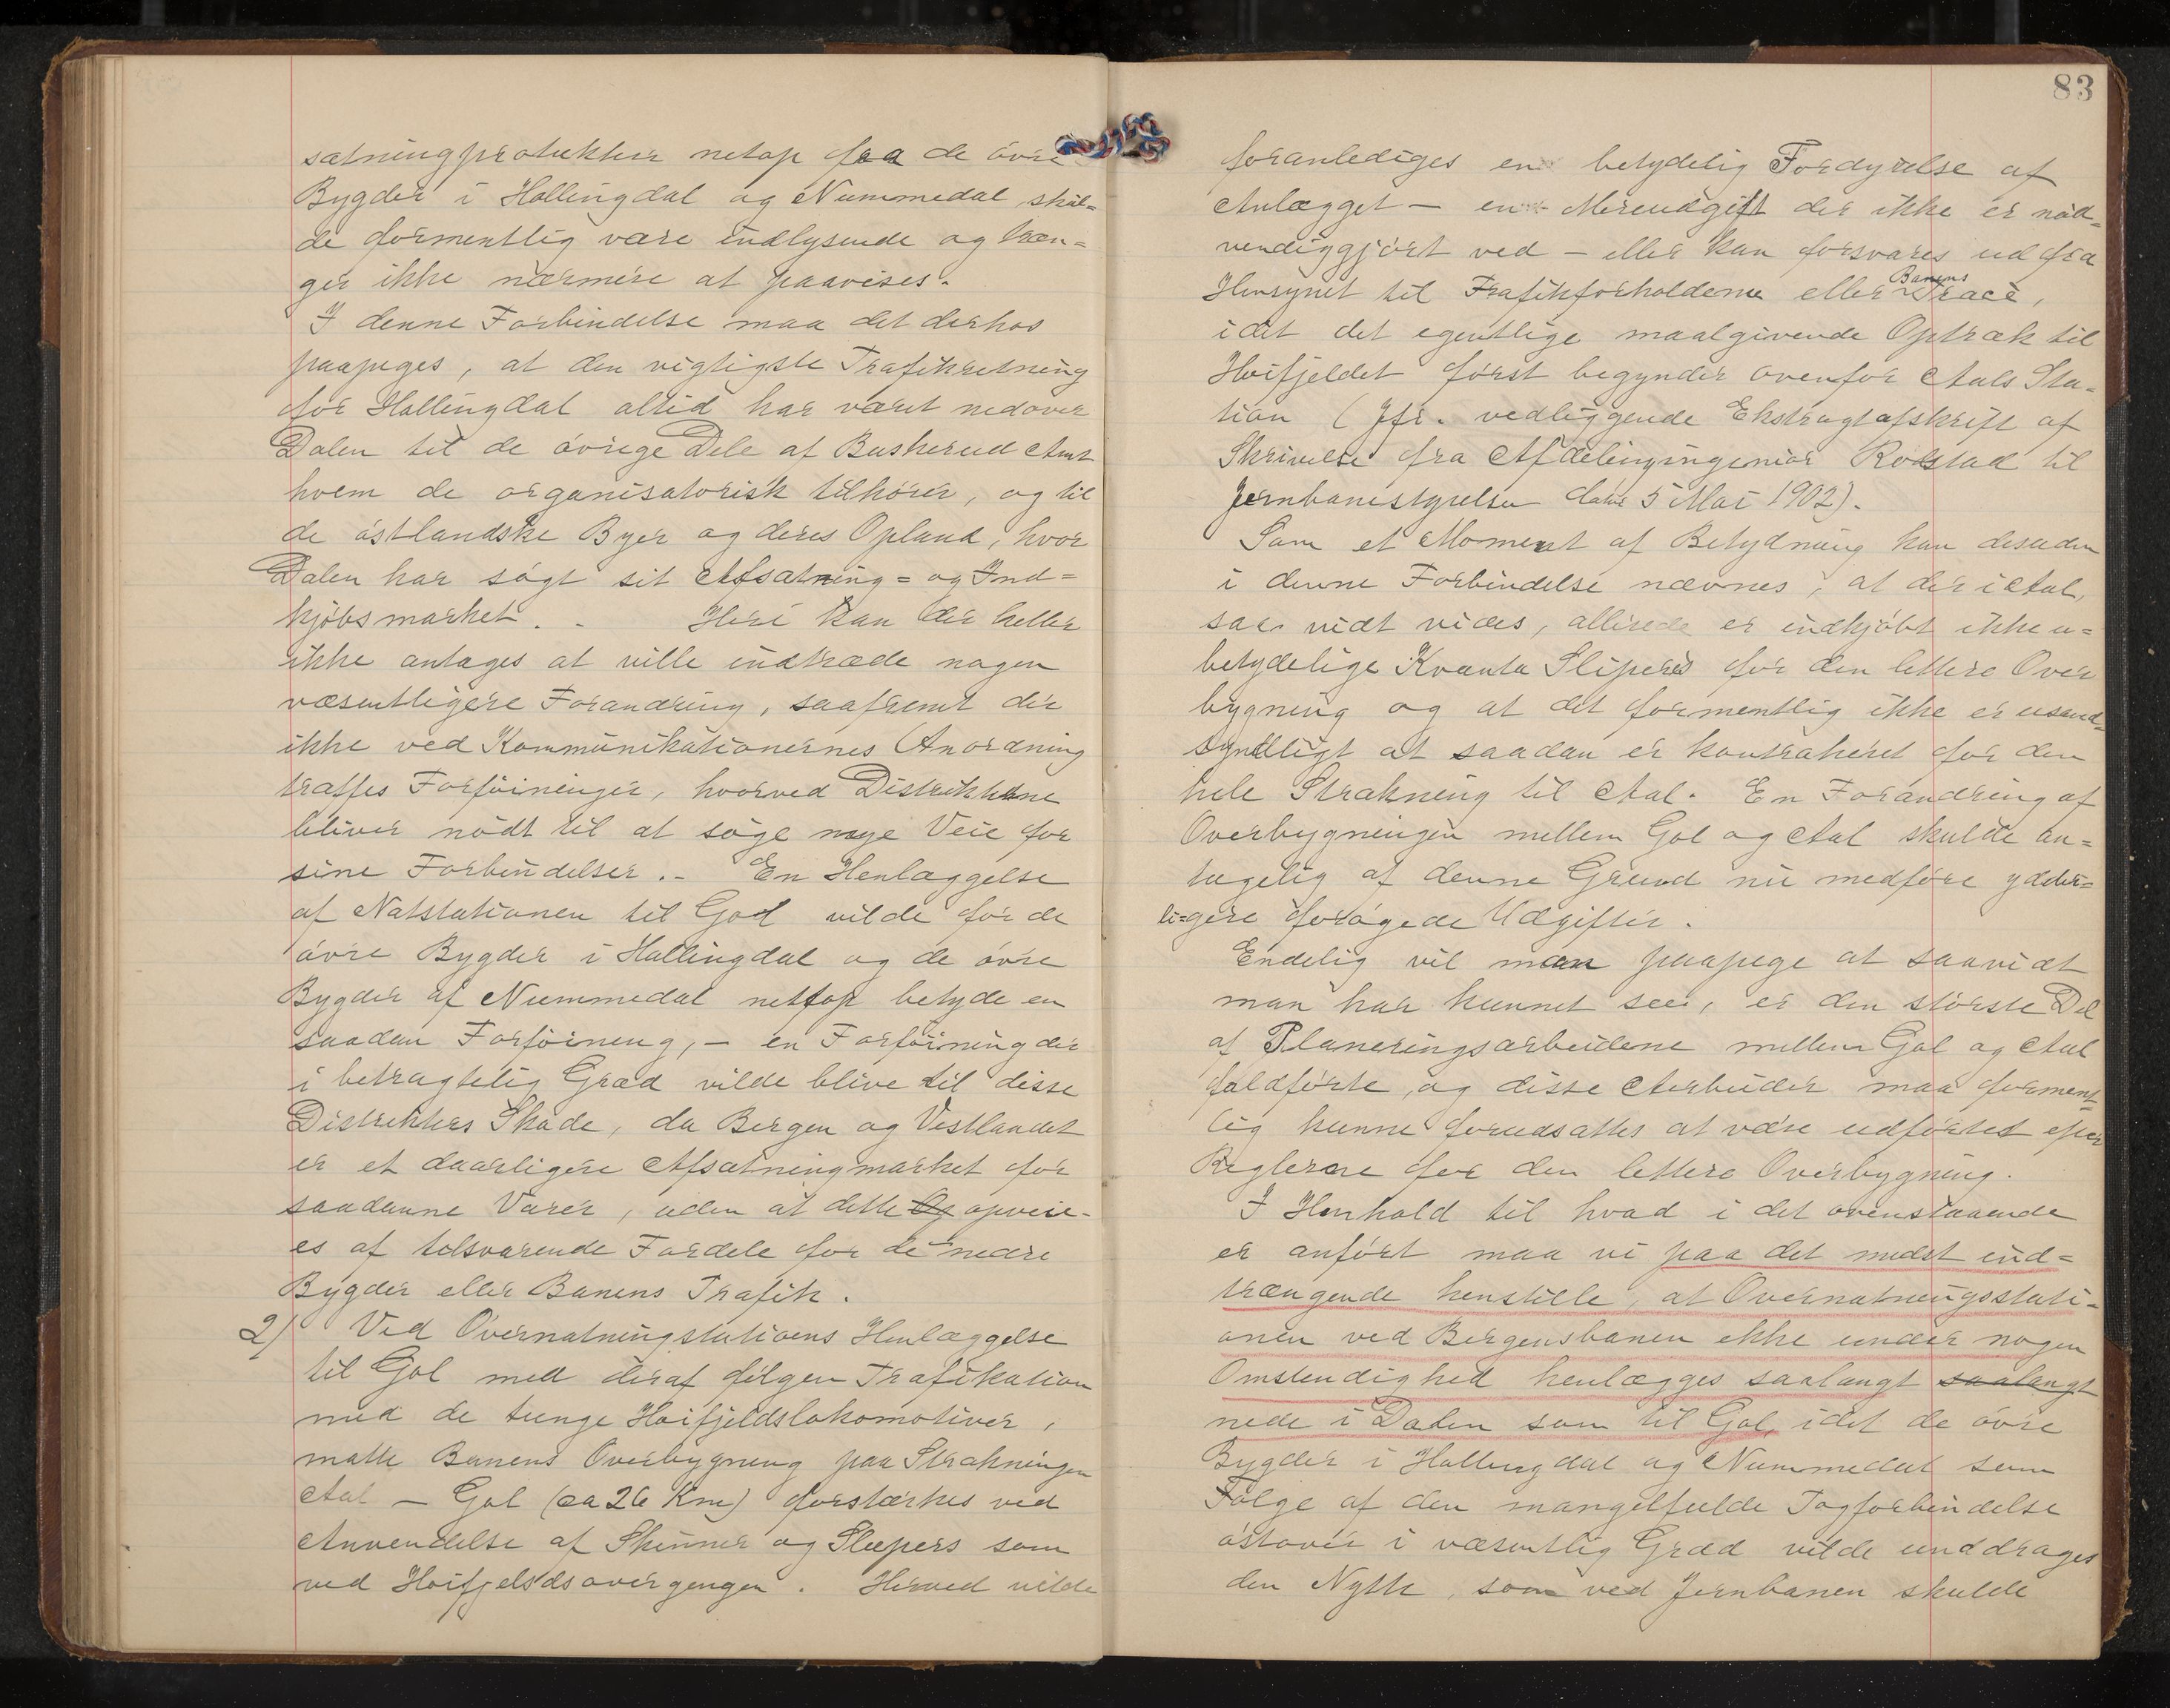 sætningprotukter netop fra de övre
Bygder i Hallingdal og Nummedal skul=
de formentlig være indlysende og træn=
ger ikke nærmere at paavises.
I denne Forbindelse maa det derhos
paapeges, at den vigtigste Trafikretning
for Hallingdal altid har været nedover
Dalen til de övrige Dele af Buskerud Amt
hvem de organisatorisk tilhörer, og til
de östlandske Byer og deres Opland, hvor
Dalen har sögt sit Afsatning= og Ind=
kjöbsmarket. - Heri kan der heller
ikke antages at ville indtræde nogen
væsentligere Forandring, saafremt der
ikke ved Kommunikationernes Anordning
træffes Forföininger, hvorved Distrikterne
bliver nödt til at söge nye Veie for
sine Forbindelser. - En Henlæggelse
af Natstationen til Gol vilde for de
övre Bygder i Hallingdal og de övre
Bygder af Nummedal nettop betyde en
saadan Forföineng, - en Forföining der
i betragtelig Grad vilde blive til disse
Distrikters Skade, da Bergen og Vestlandet
er et daarligere Afsætningmarket for
saadanne Varer, uden at dette opveie-
es af tilsvarende Fordele for de nedre
Bygder eller Banens Trafik.
2) Ved Overnatningstations Henlæggelse
til Gol med deraf fölgen Trafikation
med de tunge Höifjeldslokomotiver,
matte Banens Overbygning paa Strakningen
Aal - Gol (ca 26 Km) forstærkes ved
Anvendelse af Skinner og Sleepers som
ved Höifjelsdsovergengen. Herved vilde
83
foranlediges en betydelig Fordyrelse af
Anlægget - en Merudgift der ikke er nöd=
vendiggjört ved - eller kan forsvares ud fra
Hensynet til Trafikforholdene eller Banens Trace,
idet det egentlige maalgivende Optræk til
Höifjeldet först begynder ovenfor Aals Sta=
tion (Jfr. vedliggende Ekstragtafskrift af
Skrivelse fra Afdelingingeniör Rodstad til
Jernbanestyrelsen datr 5 Mai 1902).
Som et Moment af Betydning kan desuden
i denne Forbindelse nævnes, at der i Aal,
saa vidt vides, allirede er indkjöbt ikke u=
betydelige Kvanta Slipers for den lettere Over
bygning og at det formentlig ikke er usand=
syndligt at saadan er kontraheret for den
hele Strakning til Aal. En Forandring af
Overbygningen mellem Gol og Aal skulde an=
tagelig af denne Grund nu medföre yder=
li=gere forögede Udgifter.
Endelig vil man paapege at saavidt
man har kunnet see, er den störste Del
af Planeringsarbeidene mellem Gol og Aal
fuldförte, og disse Arbeider maa forment=
lig kunne forudsattes at være udförtet efter
Reglerne for den lettere Overbygning.
I Henhold til hvad i det ovenstaaende
er anfört maa vi paa det medst ind=
trængende henstille, at Overnatningsstati=
onen ved Bergensbanen ikke under nogen
Omstendighed henlægges saalangt saalangt
nede i Dalen som til Gol, idet de övre
Bygder i Hallingdal og Nummedal som
Fölge af den mangelfulde Togforbindelse
östover i væsentlig Grad vilde unddrages
den Nytte, som ved Jernbanen skulde